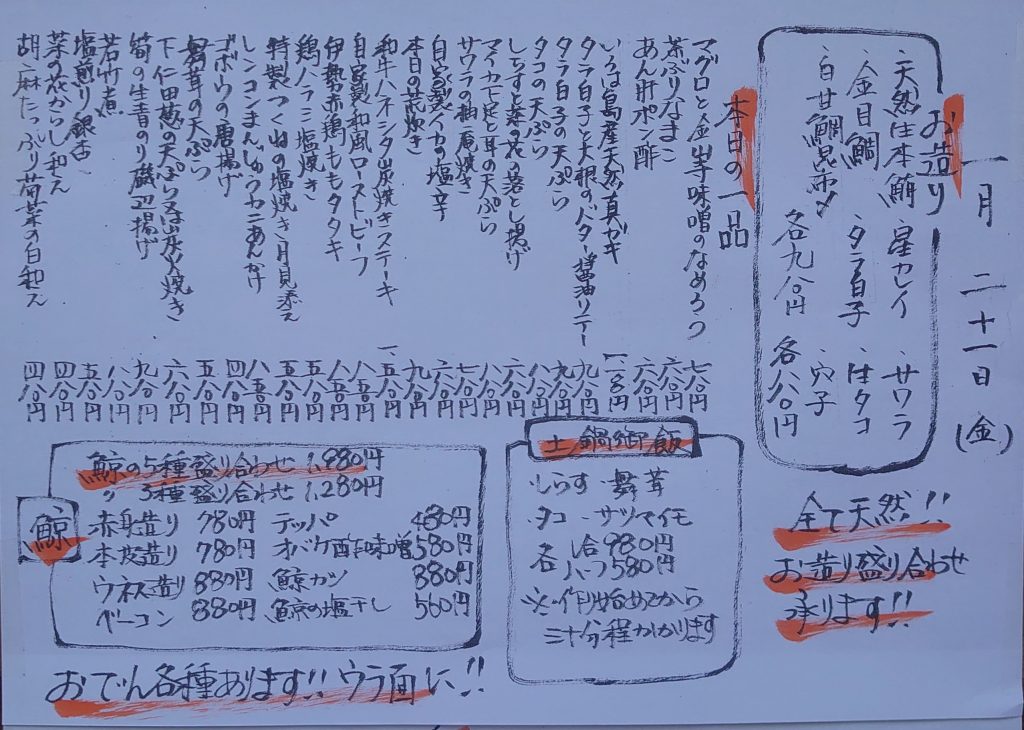 一月二十一日(金)
お造り
・天然生本鮪 ・星カレイ ・サワラ
・金目鯛 ・タラ白子 ・生タコ
・白甘鯛昆布〆 ・穴子
各九八〇円 各八八〇円
全て天然!!
お造り盛り合わせ
承ります!!
本日の一品
マグロと金山寺味噌のなめろう
茶ぶりなまこ
あん肝ポン酢
いろは島産天然真ガキ
タラ白子と大根のバター醤油ソテー
タラ白子の天ぷら
タコの天ぷら
しらすと菜の花の落とし揚げ
マイカ下足と耳の天ぷら
サワラの柚庵焼き
自家製イカの塩辛
本日の荒炊き
和牛ハネシタ炭焼きステーキ
自家製和風ローストビーフ
伊勢赤鶏ももタタキ
鶏ハラミ塩焼き
特製つくねの塩焼き月見添え
レンコンまんじゅうカニあんかけ
ゴボウの唐揚げ
舞茸の天ぷら
下仁田葱の天ぷら又は炭火焼き
筍の生青のり磯辺揚げ
若竹煮
塩煎り銀杏
菜の花からし和え
胡麻たっぷり菊菜の白和え
土鍋御飯
・しらす ・舞茸
・タコ ・サツマイモ
各 一合 980円
ハーフ 580円
※作り始めてから
三十分程かかります
鯨
鯨の5種盛り合わせ 1,980円
〃 3種盛り合わせ 1,280円
赤身造り 780円 テッパ 480円
本皮造り 780円 オバケ酢味噌 580円
ウネス造り 880円 鯨カツ 880円
ベーコン 880円 鯨の塩干し 560円
おでん各種あります!! ウラ面に!!